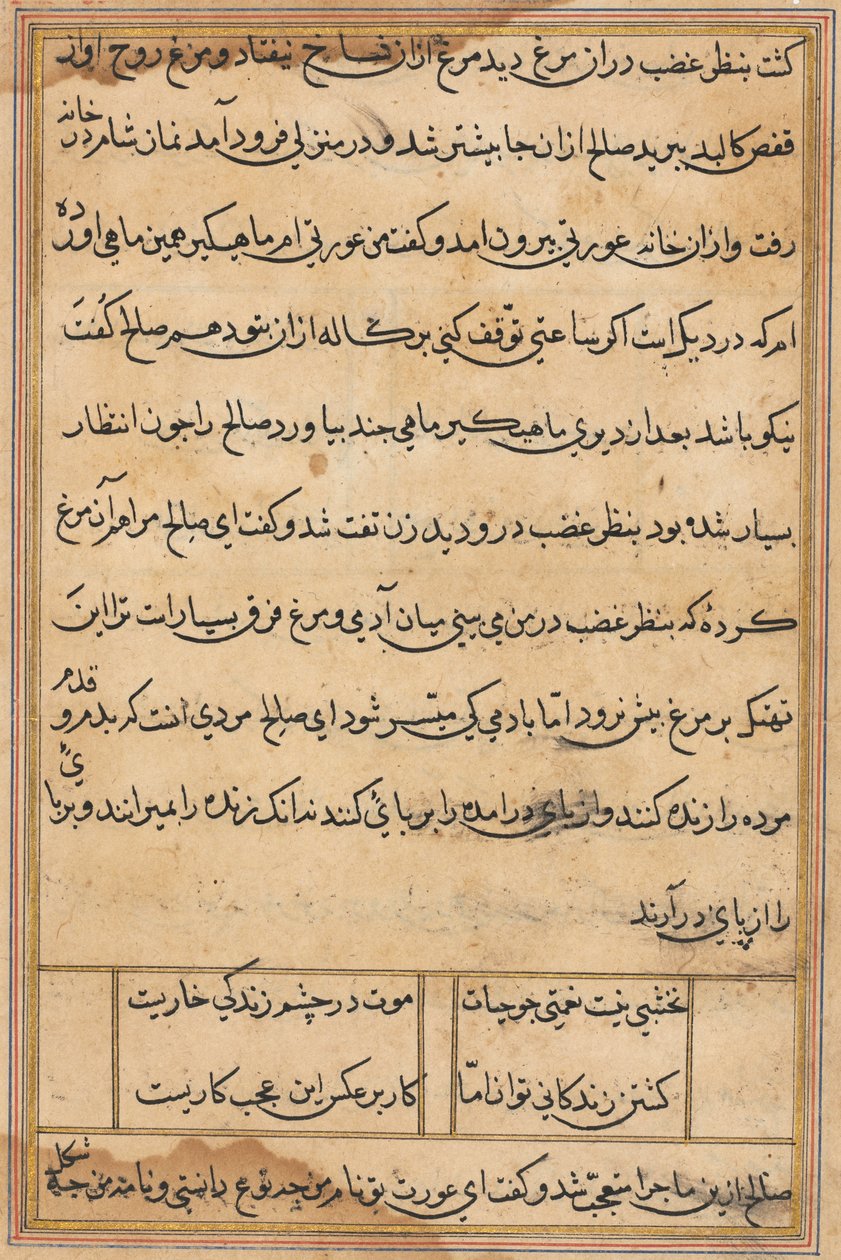 کشت بنظر غضب دران مرغ دید مرغ ازان شاخ نیفتاد و مرغ روح او از
قفص کالبد نپرید صالح ازان جا بیشتر شد و در منزلی فرود آمد نماز شام در خانه
رفت و ازان خانه عورتی بیرون امد و کفت من عورتی ام ماهیکیر همین ماهی اورده
ام که در دیک است اکر ساعتی توّقف کنی برکاله ازان بتو دهم صالح کُفتَ
نیکو باشد بعد از دیری ماهیکیر ماهی جند بیاورد صالح را جون انتظار
بسیار شده بود بنظر غضب درو دید زن تفت شد و کفت ای صالح مرا هم آن مرغ
کردهٔ که بنظر غضب در من می بینی میان آدمی و مرغ فرق بسیار است ترا اینَ
تهتک بر مرغ بیش نرود امّا بادمی کی میّسر شود ای صالح مردی انست که بدم و قدم
مرده را زنده کنند و از بای درامده را بر بایٔ کنند نه انک زنده را بمیرانند و بر بایٔ
را از پای در آرند
نخشبی نیست نعمتی جو حیات
موت در چشم زندکی خاریست
کشتن زندکانی توان امّا
کار بر عکس این عجب کاریست
صالح ازین ماجرا متعجّب شد و کفت ای عورت تو نام من جه نوع دانستی و نامه من جه شکل